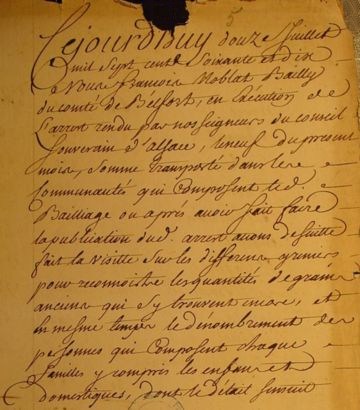 5
Cejourdhuy douze Juillet
mil sept cent Soixante et dix
Nous François Noblat Bailly
du comté de Belfort, en Exécution de
L'arrest rendu par nosseigneurs du conseil
Souverain d'alsace, le neuf du present
mois, Somme transporté dans les
Communautés qui Composent led.
Bailliage ou après avoir fait faire
la publication dud. arrest avons de suitte
fait la visitte Sur les differens greniers
pour reconnoistre les quantités de grains
anciens qui s'y trouvent encore, et
en mesme temps le dénombrement des
personnes qui Composent chaque
familles y compris les enfans et
domestiques, dont le détail Ensuit